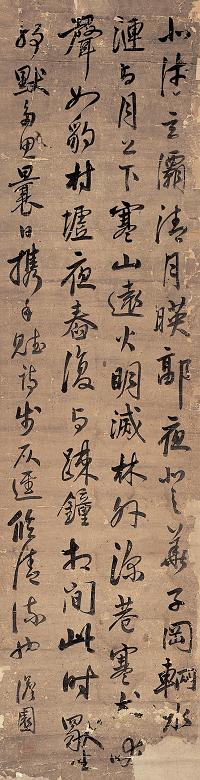 北涉玄灞清月暎郭夜登華子岡輞水
漣与月上下寒山遠火明滅林外深巷寒犬吠
聲如豹村墟夜舂復与疎鐘相間此時獨坐
靜默多思曩日携手賦詩步仄逕臨清流也 澹園